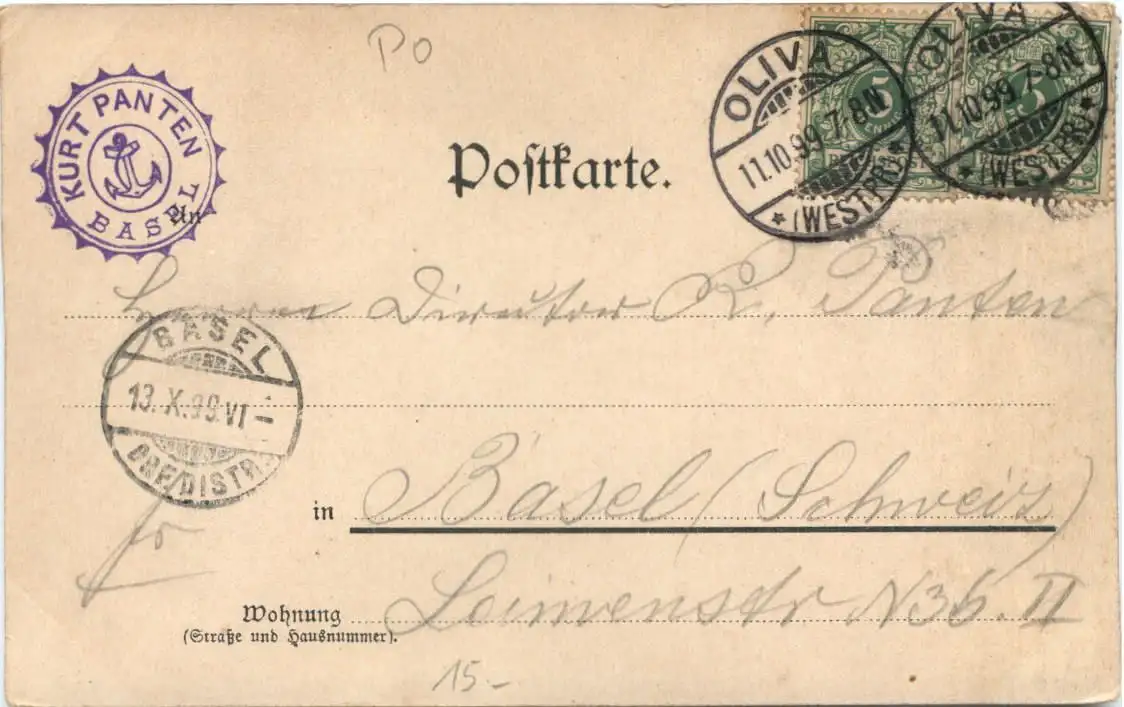 PO
KURT PANTEN
BASEL
Postkarte.
OLIVA
11.10.99 7-8N
*(WESTPR)*
OLIVA
11.10.99 7-8N
*(WESTPR)*
5
An
Herrn Director K. Panten
BASEL
13.X.99.VI-
BRF/DISTR.
in Basel (Schweiz)
fr
Wohnung Leimenstr N36. II
(Straße und Hausnummer).
15.-